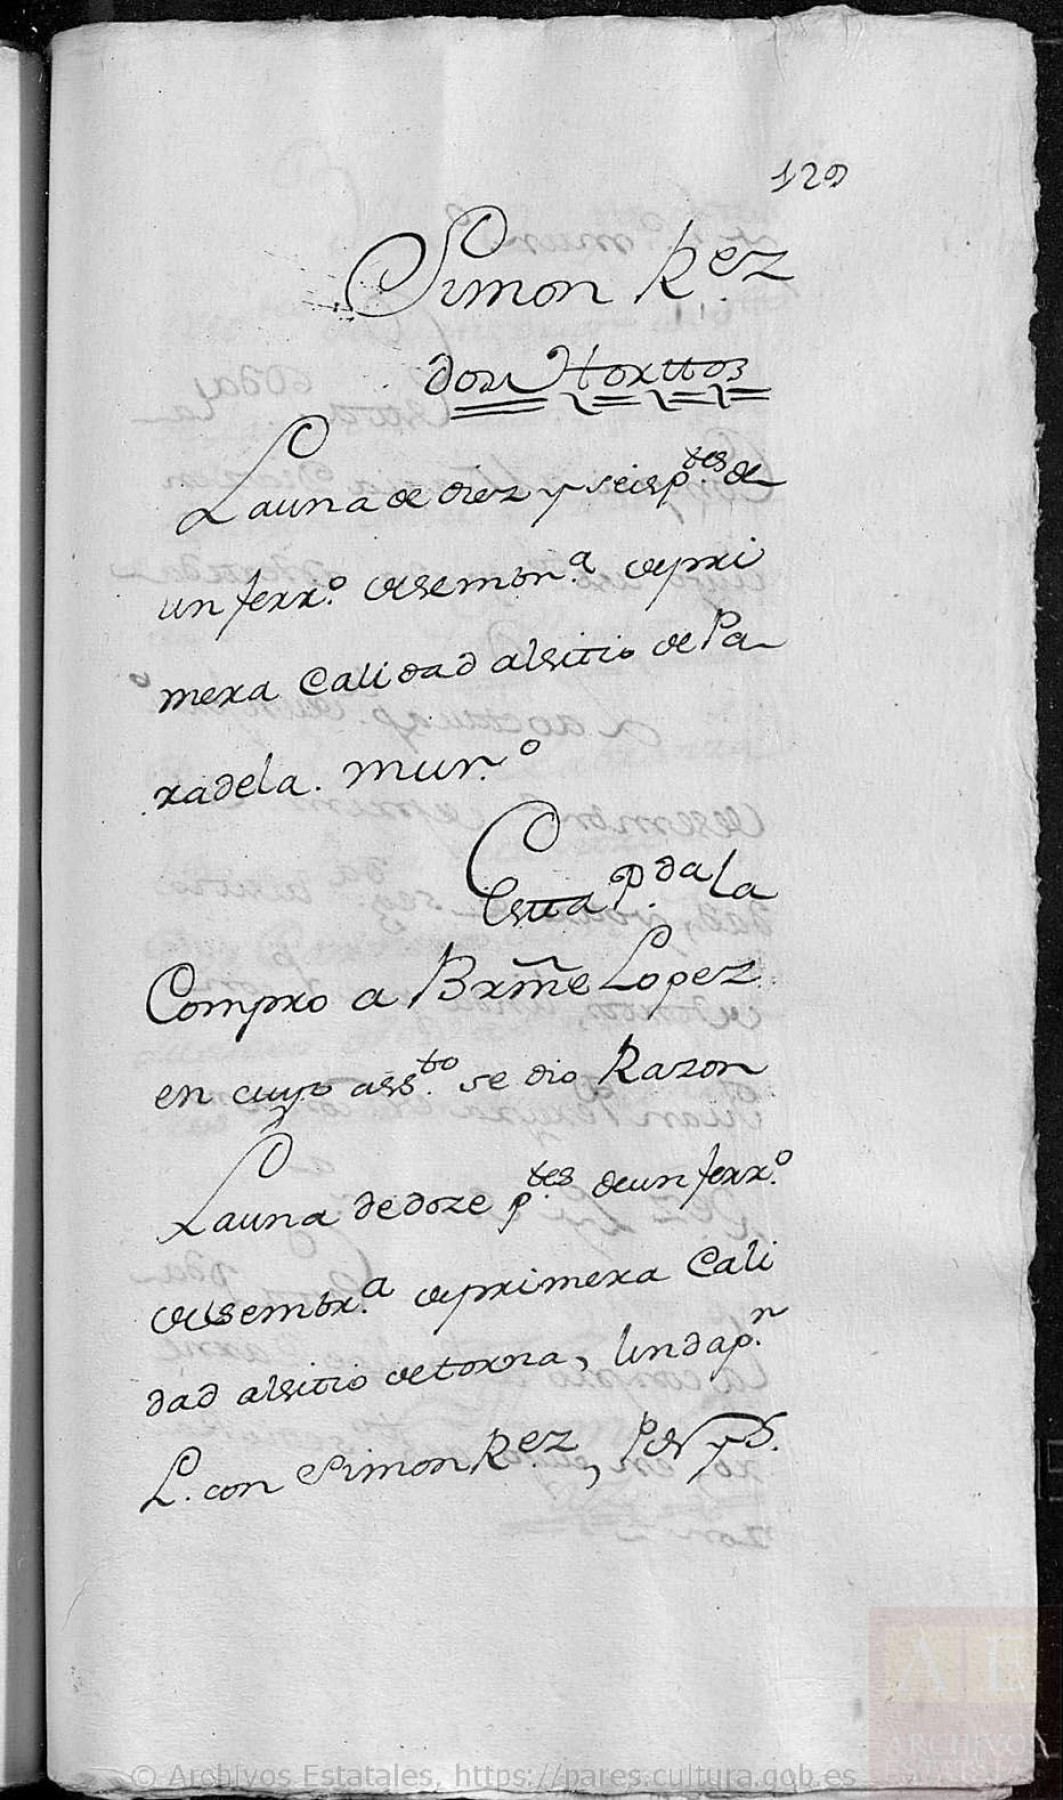 129
Simon R.ez
dosu Horttos
La una de diez y seis p.tes de
un ferr.o de sembr.a de pri
mera Calidad al sitio de Pa
radela. mur.o
Estta P.da la
Compro a Brm̃e Lopez
en cuyo ass.to se dio Razon
La una de doze p.tes de un ferr.o
de sembr.a de primera Cali
dad al sitio de torna, linda p.r
L. con Simon R.ez, P. N y S.
© Archivos Estatales, https://pares.cultura.gob.es
AE
ARCHIVOS
ESTATALES